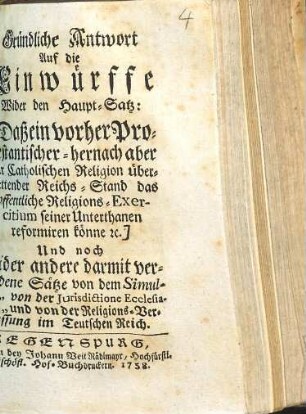 4
Gründliche Antwort
Auf die
Einwürffe
Wider den Haupt-Satz:
Daß ein vorher Pro-
estantischer-hernach aber
r Catholischen Religion über-
ettender Reichs-Stand das
offentliche Religions-Exer-
citium seiner Unterthanen
reformiren könne ꝛc.]
Und noch
ider andere darmit ver-
dene Sätze von dem Simul-
von der Jurisdictione Ecclesia-
und von der Religions-Ver-
ssung im Teutschen Reich.
REGENSPURG,
den Johann Veit Rädlmayr, Hochfürstl.
schöfl. Hof-Buchdruckern. 1758.